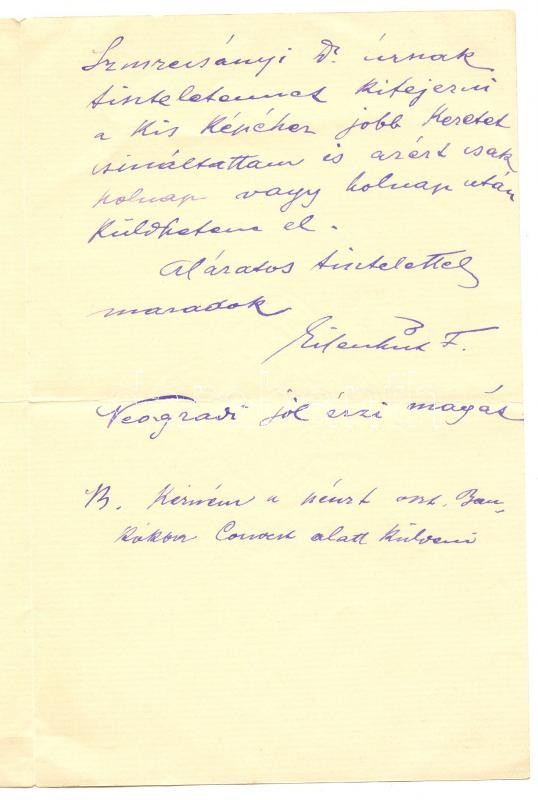 Szmrecsányi Dr úrnak
tiszteletemet kifejezni
a kis képéhez jobb keretet
csináltattam is azért csak
holnap vagy holnap után
küldhetem el.
Alázatos tisztelettel
maradok
Eisenhut F.
Neogradi jól érzi magát
NB. Kérném a pénzt oszt. Ban-
kókban Couvert alatt küldeni